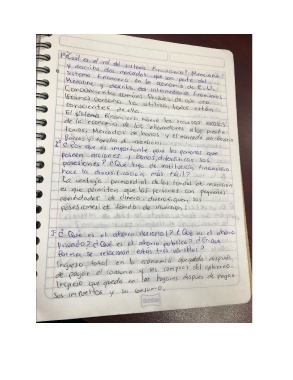 1¿Cuál es el rol del sistema financiero? Mencione
y describa dos mercados que son parte del
sistema financiero en la economía de E.U.
Mencione y describa dos intermediarios financieros
Componentes comúnes después de que una
tercera persona los utiliza todos están
conscientes de ello
El sistema financiero mueve los recursos escasos
de la economía de los ahorradores a los presta-
tarios. Mercado de bonos y el mercado de acciones
2 ¿Por qué es importante para las personas que
poseen acciones y bonos, diversificar sus
posesiones? ¿Qué tipo de institución financiera
hace la diversificación más fácil?
La ventaja primordial de los fondos de inversión
es que permiten que las personas con pequeñas
cantidades de dinero diversifiquen sus
posesiones
3¿ Qué es el ahorro nacional? ¿Qué es el ahorro
privado? ¿Qué es el ahorro público? ¿En que
forma se relacionan estas tres variables?
Ingreso total en la economía que queda después
de pagar el consumo y las compras del gobierno.
Ingreso que queda en los hogares después de pagar
sus impuestos y su consumo.